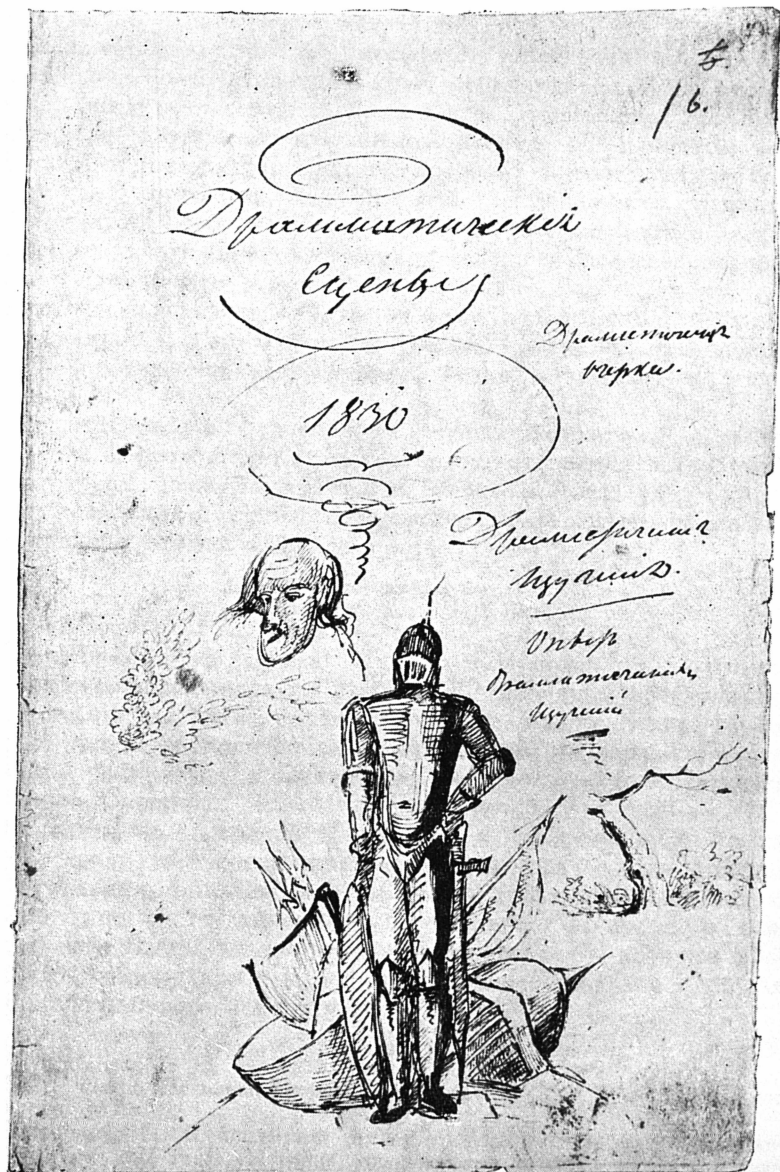 6.
Драмматическія
Сцены
1830
Драматическія
очерки.
Драматическія
Изученія.
Опытъ
Драмматическихъ
Изученій